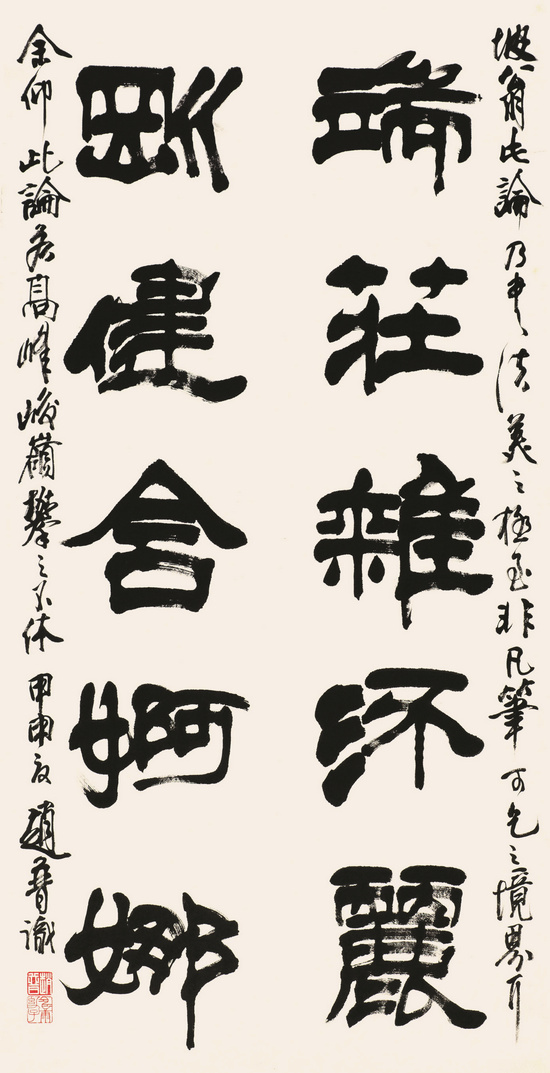 端莊雜流麗
剛健含婀娜
坡翁此論乃书法美之極至非凡筆可乞之境界耳
余仰此論若高峰峻嶺攀之不休 甲申夏 趙普識